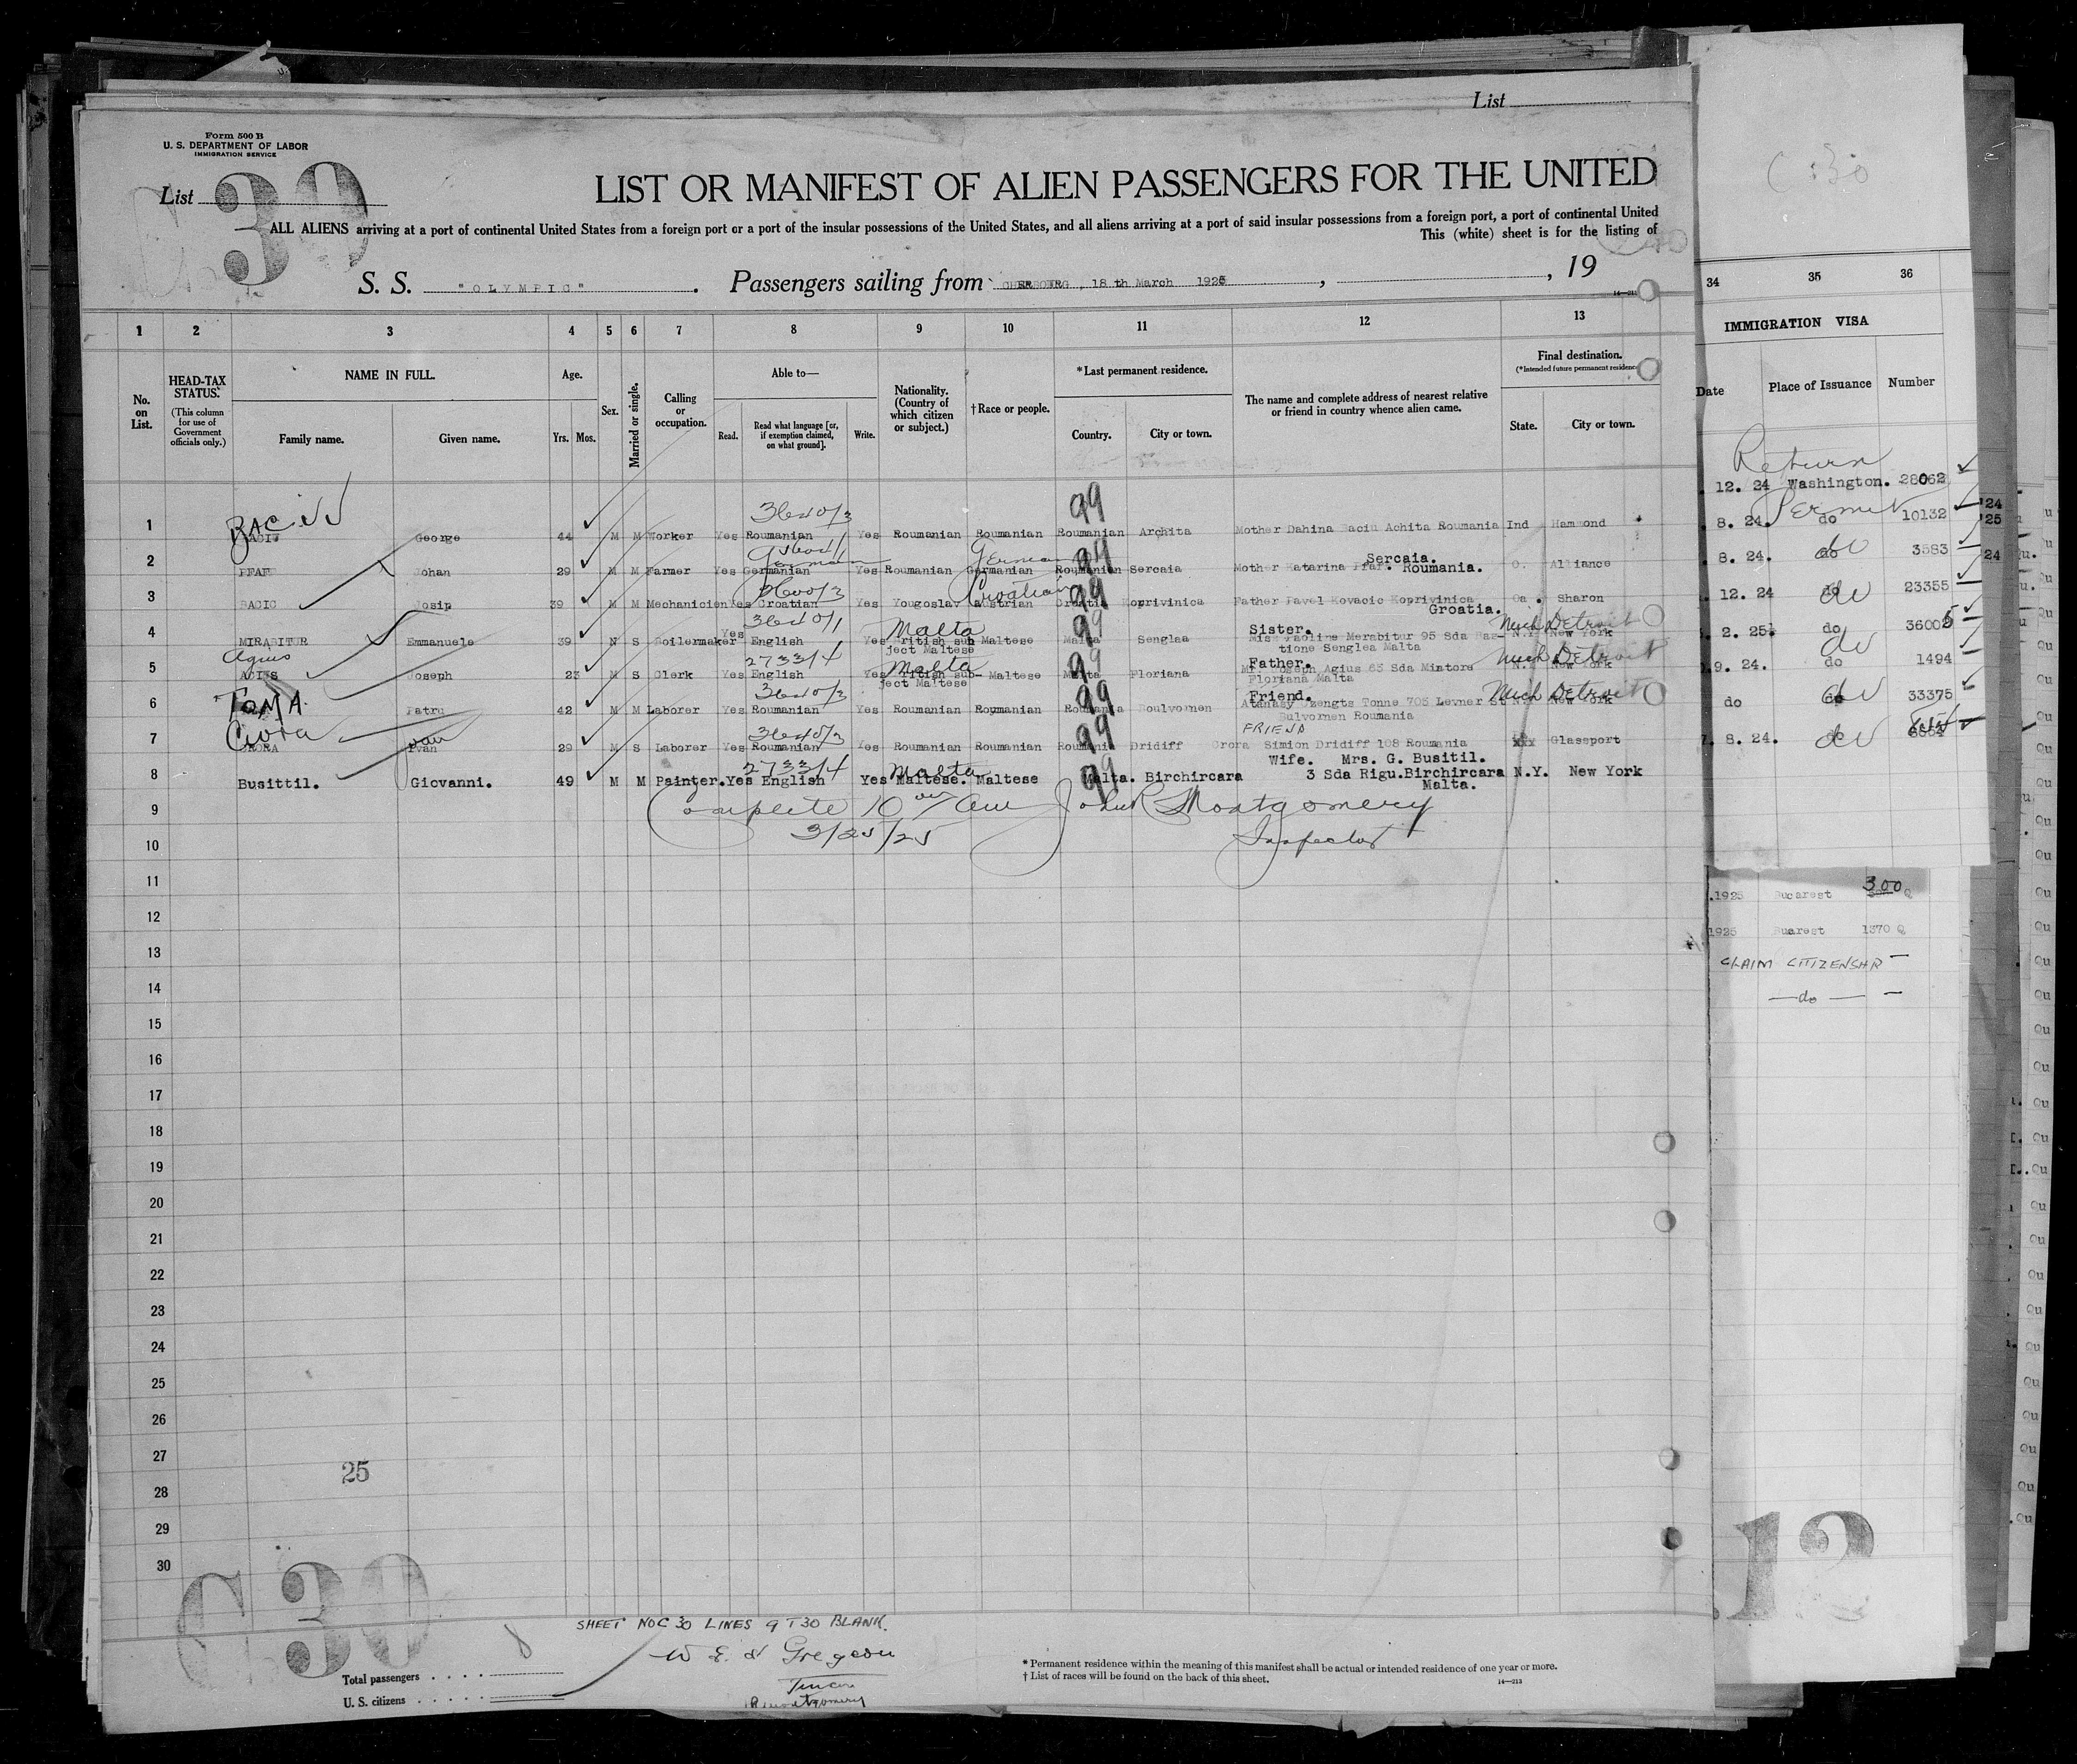 List
Form 500 B
U. S. DEPARTMENT OF LABOR
IMMIGRATION SERVICE
List
30
LIST OR MANIFEST OF ALIEN PASSENGERS FOR THE UNITED
ALL ALIENS arriving at a port of continental United States from a foreign port or a port of the insular possessions of the United States, and all aliens arriving at a port of said insular possessions from a foreign port, a port of continental United
This (white) sheet is for the listing of
S. S. "OLYMPIC". Passengers sailing from CHERBOURG, 18 th March 1925, , 19
1 2 3 4 5 6 7 8 9 10 11 12 13 34 35 36
No. on List.
HEAD-TAX STATUS. (This column for use of Government officials only.)
NAME IN FULL.
Family name. Given name.
Age.
Yrs. Mos.
Sex.
Married or single.
Calling or occupation.
Able to—
Read. Read what language [or, if exemption claimed, on what ground]. Write.
Nationality. (Country of which citizen or subject.)
†Race or people.
*Last permanent residence.
Country. City or town.
The name and complete address of nearest relative or friend in country whence alien came.
Final destination.
(*Intended future permanent residence)
State. City or town.
IMMIGRATION VISA
Date Place of Issuance Number
Return
Permit
1 BACIU George 44 M M Worker Yes Roumanian Yes Roumanian Roumanian Roumanian Archita Mother Dahina Baciu Achita Roumania Ind Hammond 12. 24 Washington. 28062
99
2 Johan 29 M M Farmer Yes Germanian Yes Roumanian Germanian Roumanian Sercaia Mother Katarina Sercaia. Roumania. O. Alliance 8. 24. do 10132
German German 99
3 BACIC Josip 39 M M Mechanicien Yes Croatian Yes Yougoslav Austrian Croatia Koprivinica Father Pavel Kovacic Koprivinica Croatia. Sharon 8. 24. do 3583
Croatian 99
4 MIRABITUR Emmanuele 39 S Boilermaker Yes English Yes British subject Maltese Maltese Malta Senglea Sister. 95 Sda Bastione Senglea Malta N.Y. New York 12. 24 do 23355
Malta 99 Mich Detroit
5 Agius Joseph 23 M S Clerk Yes English Yes British subject Maltese Maltese Malta Floriana Father. Joseph Agius 65 Sda Miatore Floriana Malta N.Y. New York 2. 25 do 36005
Malta 99 Mich Detroit
6 TOMA Patru 42 M M Laborer Yes Roumanian Yes Roumanian Roumanian Roumania Boulvornen Friend. 705 Levner St Bulvornen Roumania N.Y. New York 9. 24. do 1494
99 Mich Detroit
7 Ciora Ivan 29 M S Laborer Yes Roumanian Yes Roumanian Roumanian Roumania Dridiff FRIEND Crora Simion Dridiff 108 Roumania xxx Glassport do do 33375
99
8 Busittil. Giovanni. 49 M M Painter. Yes English Yes Maltese. Maltese Malta. Birchircara Wife. Mrs. G. Busitil. 3 Sda Rigu. Birchircara Malta. N.Y. New York 8. 24. do
Malta 99
Complete 10 am John R Montgomery
3/25/25 Inspector
9
10
11
12
13
14
15
16
17
18
19
20
21
22
23
24
25
26
27
28
29
30
1925 Bucarest 300 Q
1925 Buarest 1370 Q
CLAIM CITIZENSHP
do
25
C 30
12
SHEET NO C 30 LINES 9 T 30 BLANK.
Total passengers 8
U. S. citizens
* Permanent residence within the meaning of this manifest shall be actual or intended residence of one year or more.
† List of races will be found on the back of this sheet.
14—213